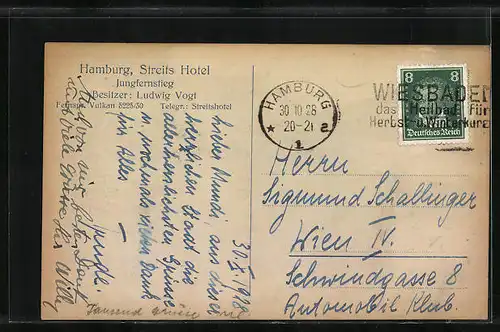 Hamburg, Streits Hotel
Jungfernstieg
Besitzer: Ludwig Vogt
Fernspr. Vulkan 8225/30 Telegr.: Streitshotel
HAMBURG
30.10.28
20-21
* 1 a
WIESBADEN
das Heilbad für
Herbst- u. Winterkuren
8 8
Deutsches Reich
30. X. 1928
Lieber Mundi, aus dieser
herrlichen Stadt die
allerherzlichsten Grüsse
u. nochmals vielen Dank
für Alles
Auch von mir besten Dank
und viele Grüsse der Willy
Tausend Grüsse
Herrn
Sigmund Schallinger
Wien IV.
Schwindgasse 8
Automobil Klub.